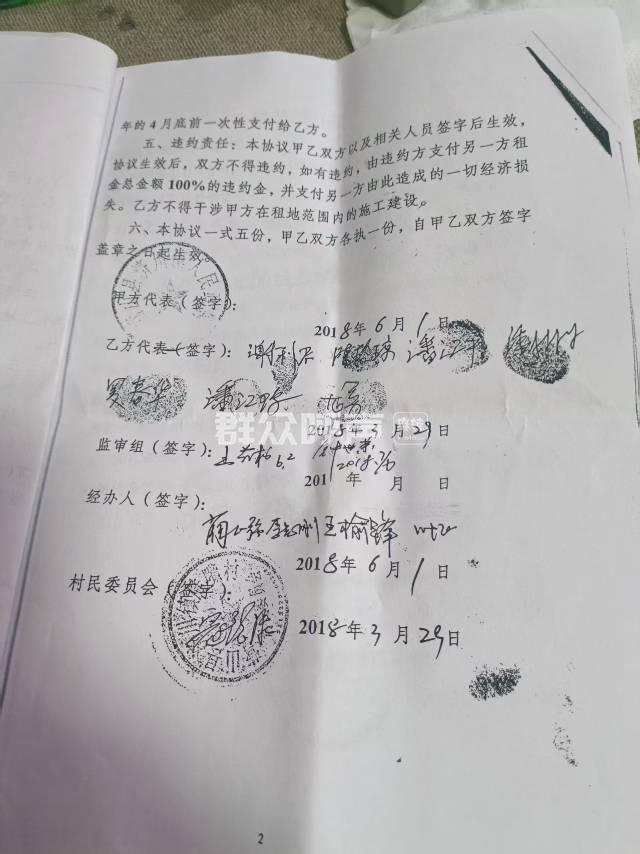 年的4月底前一次性支付给乙方。
五、违约责任：本协议甲乙双方以及相关人员签字后生效，
协议生效后，双方不得违约，如有违约，由违约方支付另一方租
金总金额100%的违约金，并支付另一方由此造成的一切经济损
失。乙方不得干涉甲方在租地范围内的施工建设。
六、本协议一式五份，甲乙双方各执一份，自甲乙双方签字
盖章之日起生效。
甲方代表（签字）：
2018年6月1日
乙方代表（签字）：
罗春华
群众呼声
2018年3月29日
监审组（签字）：
6.2
201 年 月 日
经办人（签字）：
2018年6月1日
村民委员会（签字）：
2018年3月29日
2